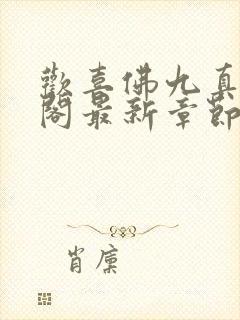 歡喜佛九真
閣最新章節
肖廩